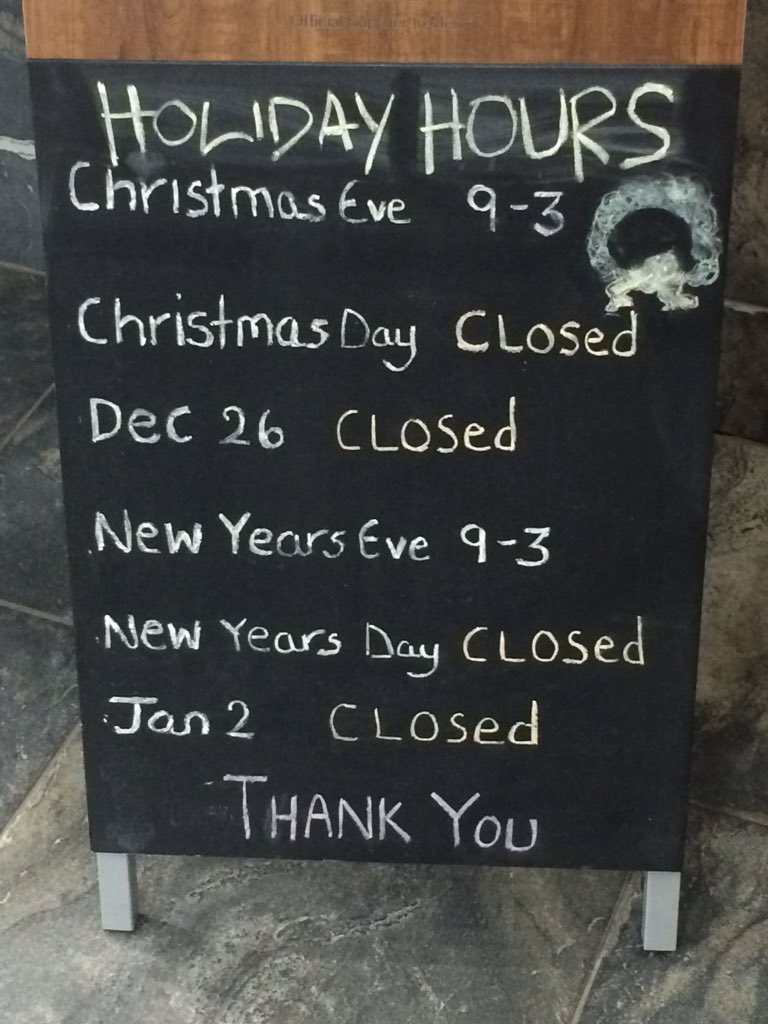 HOLIDAY HOURS
Christmas Eve 9-3
Christmas Day CLosed
Dec 26 CLosed
New Years Eve 9-3
New Years Day CLosed
Jan 2 CLosed
THANK YOU